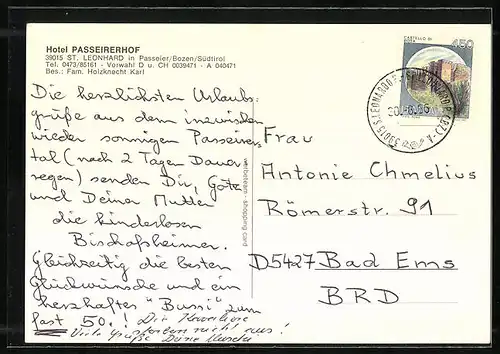 Hotel PASSEIRERHOF
39015 ST. LEONHARD in Passeier/Bozen/Südtirol
Tel. 0473/85161 - Vorwahl D u. CH 0039471 - A 040471
Bes.: Fam. Holzknecht Karl
Die herzlichsten Urlaubs-
grüße aus dem inzwischen
wieder sonnigen Passeier-
tal (nach 2 Tagen Dauer-
regen) senden Dir,
und Deiner Mutter
die kinderlosen
Bischofsheimer.
Gleichzeitig die besten
Glückwünsche und ein
herzhaftes "Bussi" zum
fast 50.! Die
sterben nicht aus!
Viele Grüße
shopping card
CASTELLO DI
450
39015 S. LEONARDO
(BZ) A
Frau
Antonie Chmelius
Römerstr. 91
D5427 Bad Ems
BRD